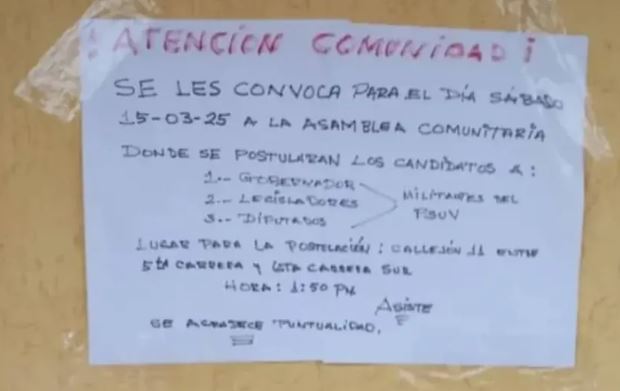 ¡ ATENCION COMUNIDAD ¡
SE LES CONVOCA PARA EL DÍA SÁBADO
15-03-25 A LA ASAMBLEA COMUNITARIA
DONDE SE POSTULARAN LOS CANDIDATOS A:
1.- GOBERNADOR
2.- LEGISLADORES
3.- DIPUTADOS
MILITANTES DEL
PSUV
LUGAR PARA LA POSTULACIÓN: CALLEJÓN 11 ENTRE
5TA CARRERA Y 6TA CARRERA SUR
HORA: 1:50 PM
ASISTE
SE AGRADECE PUNTUALIDAD.